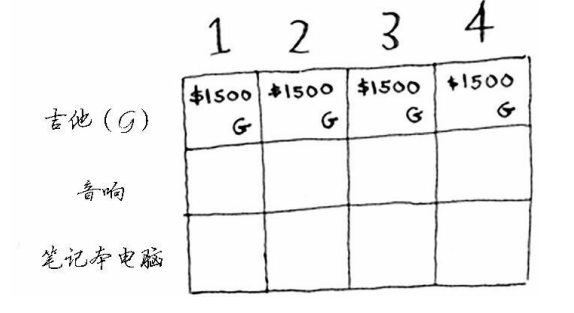 1 2 3 4
吉他(G) $1500 $1500 $1500 $1500
G G G G
音响
笔记本电脑